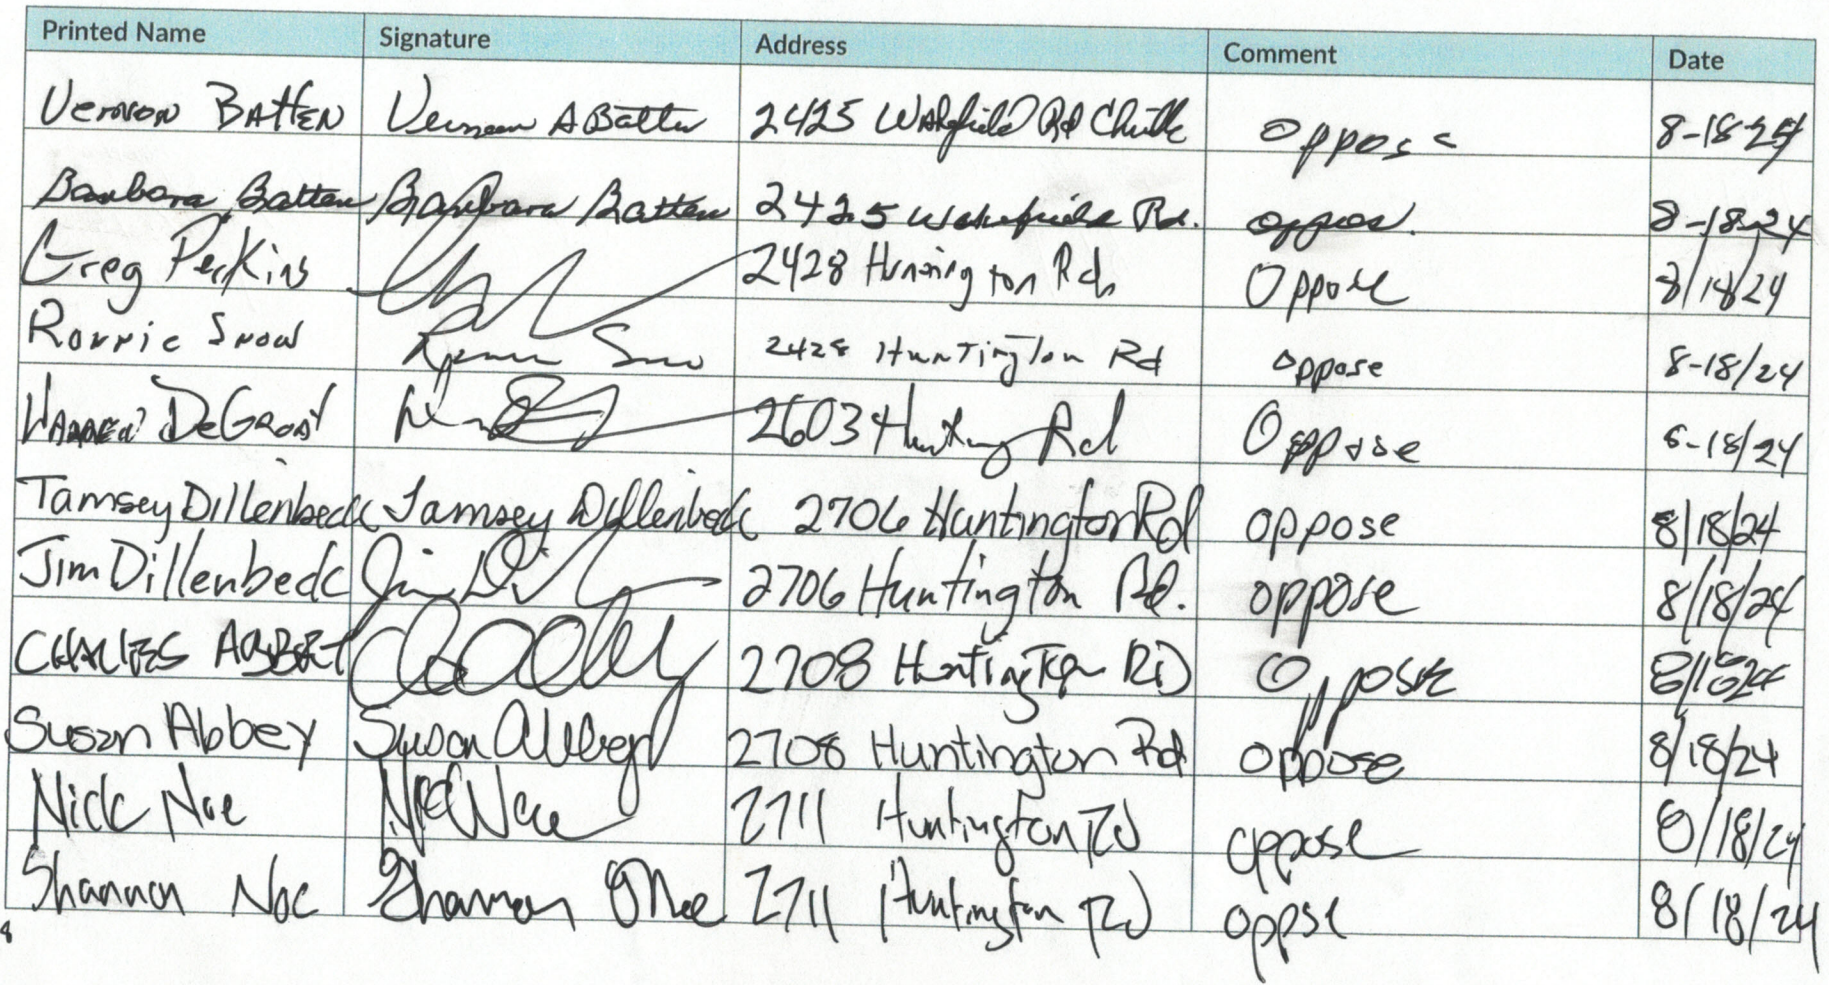 Printed Name Signature Address Comment Date
Vernon Batten Vernon A Batten 2425 Wakefield Rd oppose 8-18-24
Barbara Batten Barbara Batten 2425 Wakefield Rd. oppos. 8-18-24
Greg Perkins 2428 Rd oppose 8/18/24
Ronnie Snow 2428 Huntington Rd oppose 8-18/24
Warren 2603 Rd Oppose 8-18/24
Tamsey Dillenbeck Tamsey Dillenbeck 2706 Huntington Rd oppose 8/18/24
Jim Dillenbeck 2706 Huntington Rd. oppose 8/18/24
CHARLES 2708 Huntington RD Oppose 8/18/24
Susan Abbey Susan Abbey 2708 Huntington Rd oppose 8/18/24
Nick Noe Nick Noe 2711 Huntington Rd oppose 8/18/24
Shannon Noe Shannon Noe 2711 Huntington Rd oppse 8/18/24